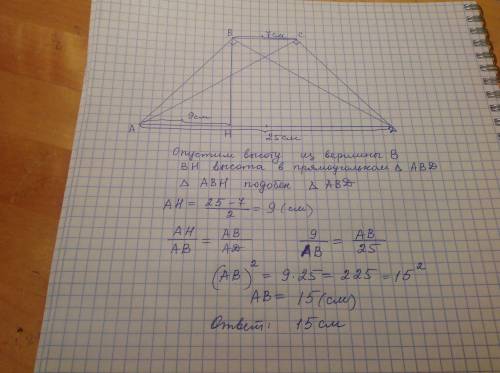 B 7см C
9см
A H 25см
Опустим высоту из вершины B
BH высота в прямоугольном Δ ABD
Δ ABH подобен Δ ABD
AH = 25-7/2 = 9 (см)
AH/AB = AB/AD 9/AB = AB/25
(AB)² = 9·25 = 225 = 15²
AB = 15 (см)
Ответ: 15 см